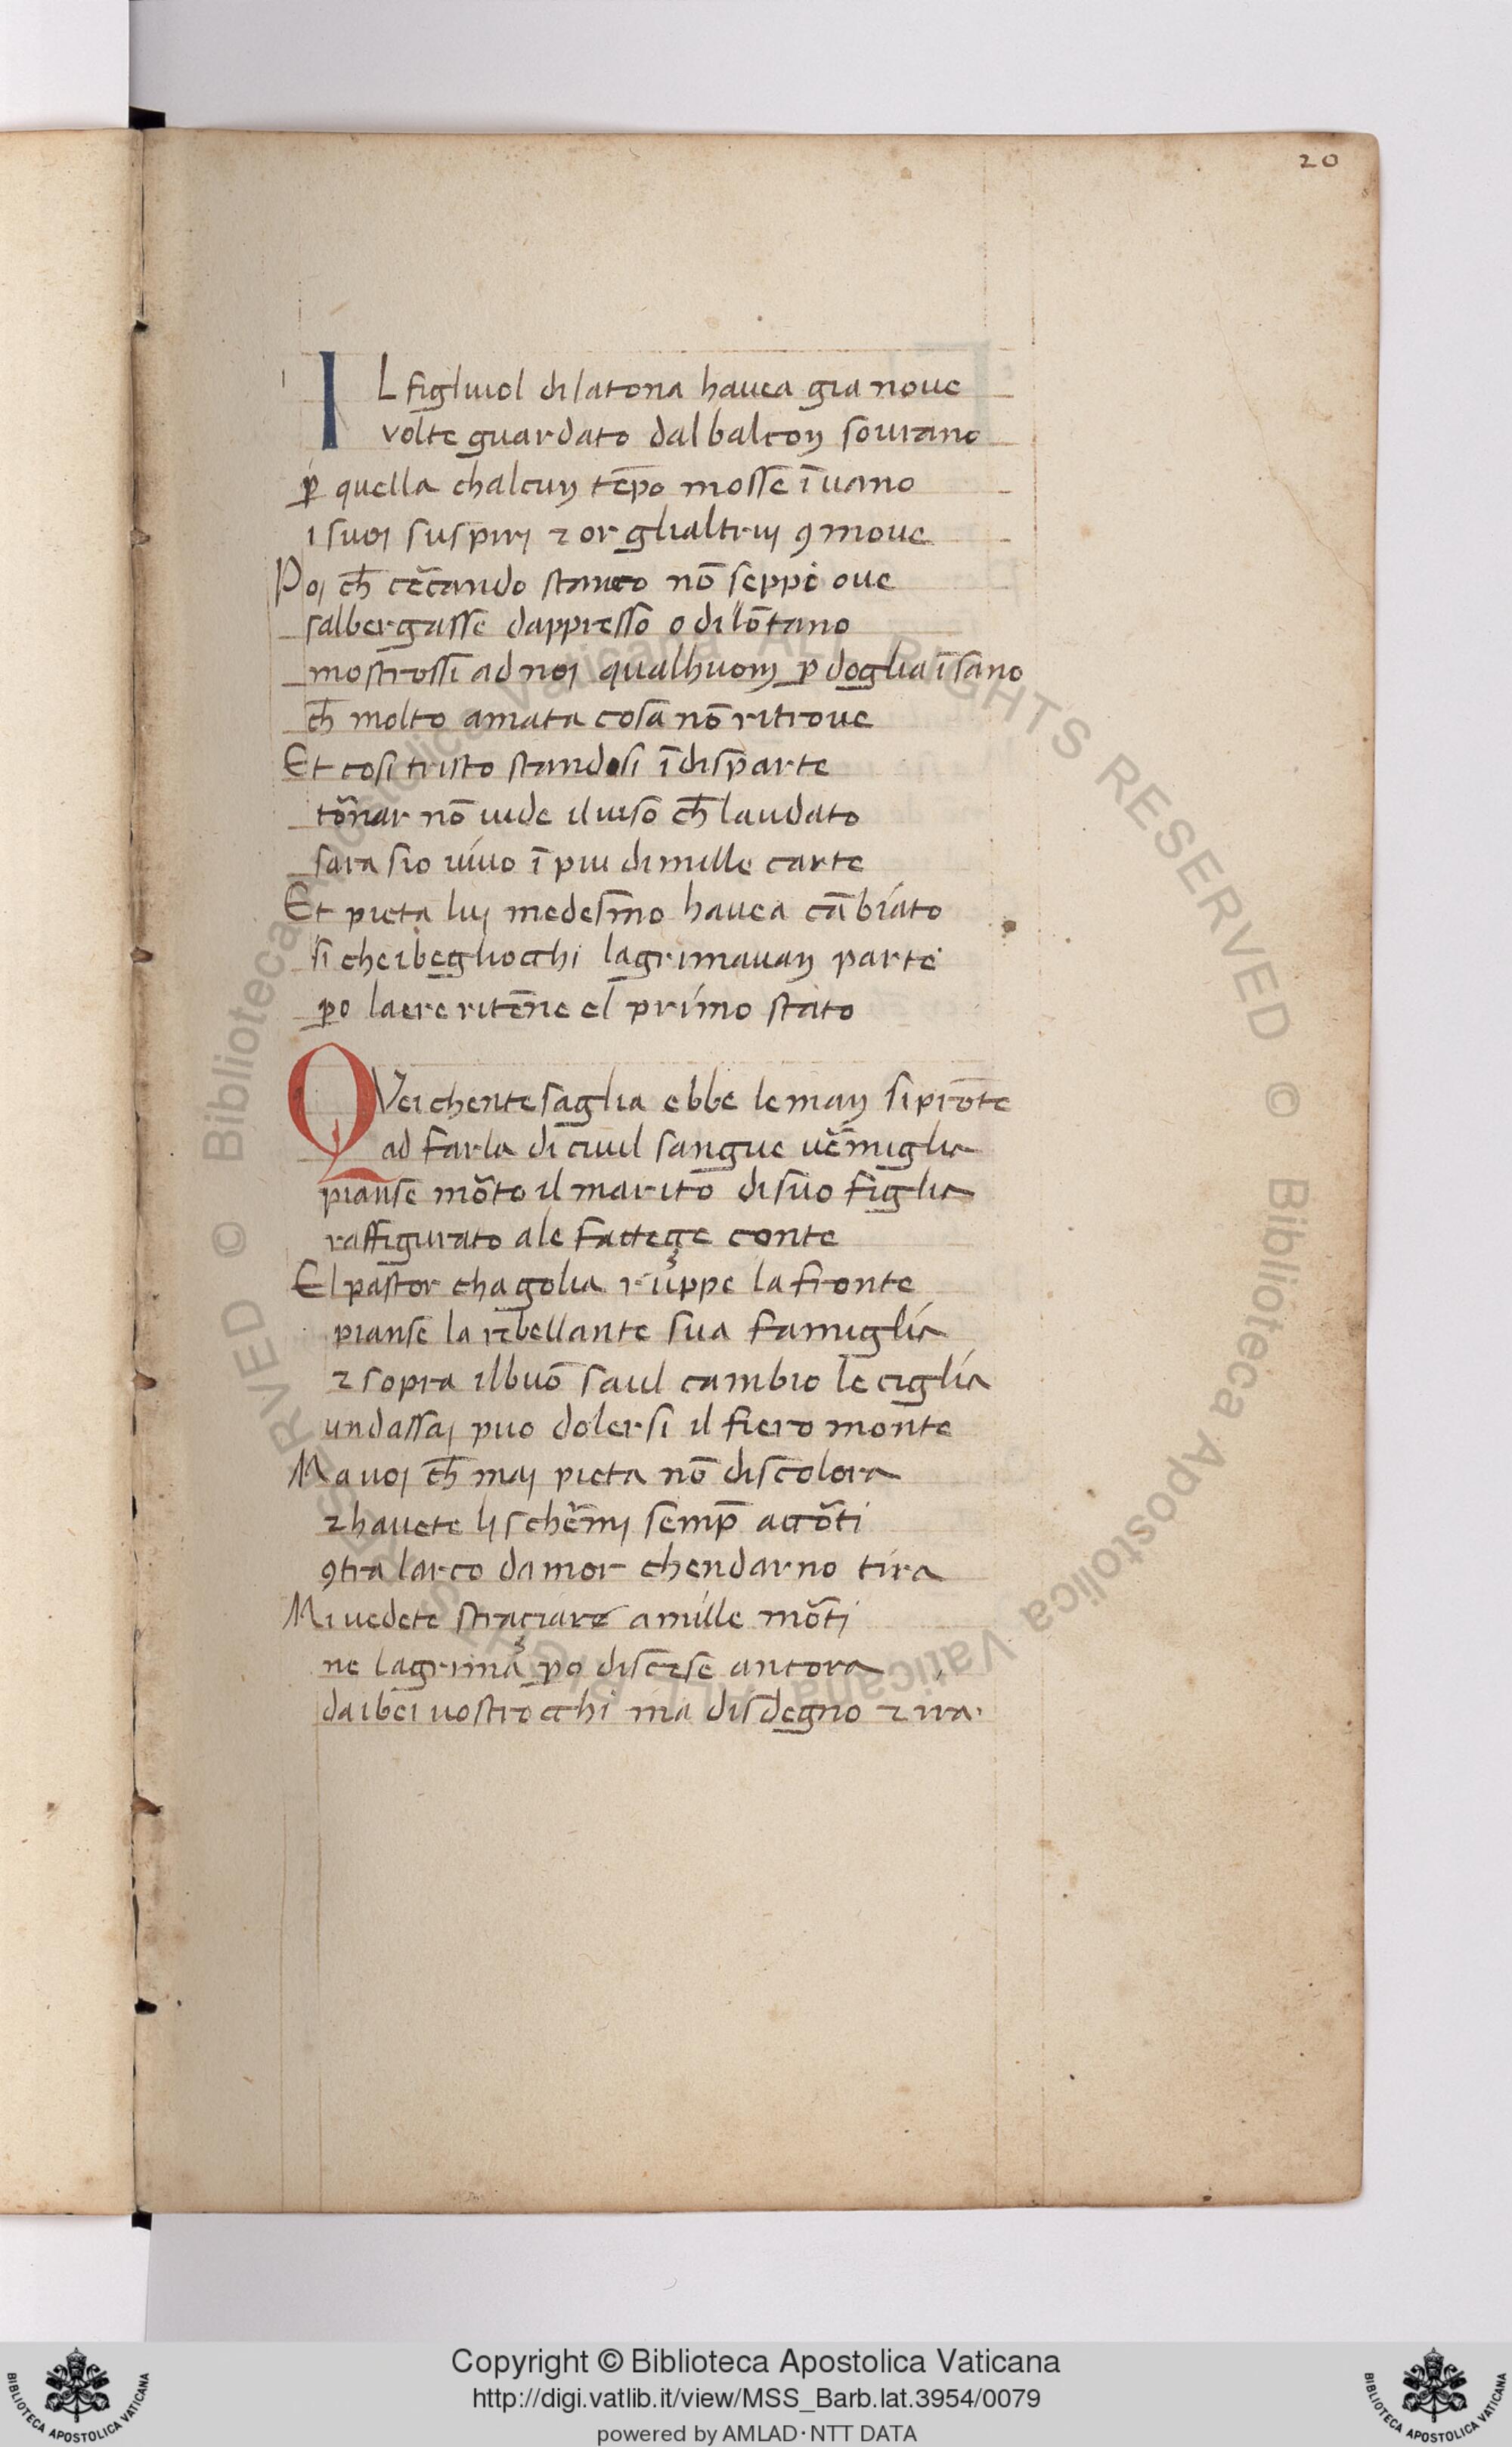 20
IL figluiol di latona havea gia noue
volte guardato dal balcon sourano
ꝑ quella chalcun tēpo mosse ī uano
i suoi suspiri ⁊ or glialtrui ꝯmoue
Poi ch̄ cercando stanco nō seppe oue
salbergasse dappresso o di lōtano
mostrossi ad noi qualhuom ꝑ doglia īsano
ch̄ molto amata cosa nō ritroue
Et cosi tristo standosi ī disparte
tornar nō uide il uiso ch̄ laudato
sara sio uiuo ī piu di mille carte
Et pieta lui medesmo havea cābiato
si che ibegliocchi lagrimauan parte
ꝑo laere ritēne el primo stato
QVei chentesaglia ebbe le man si prōte
ad farla di ciuil sangue uermiglia
pianse morto il marito di sua figlia
raffigurato ale fatteçe conte
El pastor cha golia ruppe la fronte
pianse la rebellante sua famiglia
⁊ sopra ilbuō saul cambio le ciglia
undassai puo dolersi il fiero monte
Ma uoi ch̄ mai pieta nō discolora
⁊ havete li schermi semp̄ accorti
ꝯtra larco damor chendarno tira
Mi vedete straçiare amille morti
ne lagrima ꝑo discese ancora
da ibei uostrocchi ma disdegno ⁊ ira.
Copyright © Biblioteca Apostolica Vaticana
http://digi.vatlib.it/view/MSS_Barb.lat.3954/0079
powered by AMLAD·NTT DATA
BIBLIOTECA APOSTOLICA VATICANA
BIBLIOTECA APOSTOLICA VATICANA
© Biblioteca Apostolica Vaticana ALL RIGHTS RESERVED
© Biblioteca Apostolica Vaticana ALL RIGHTS RESERVED